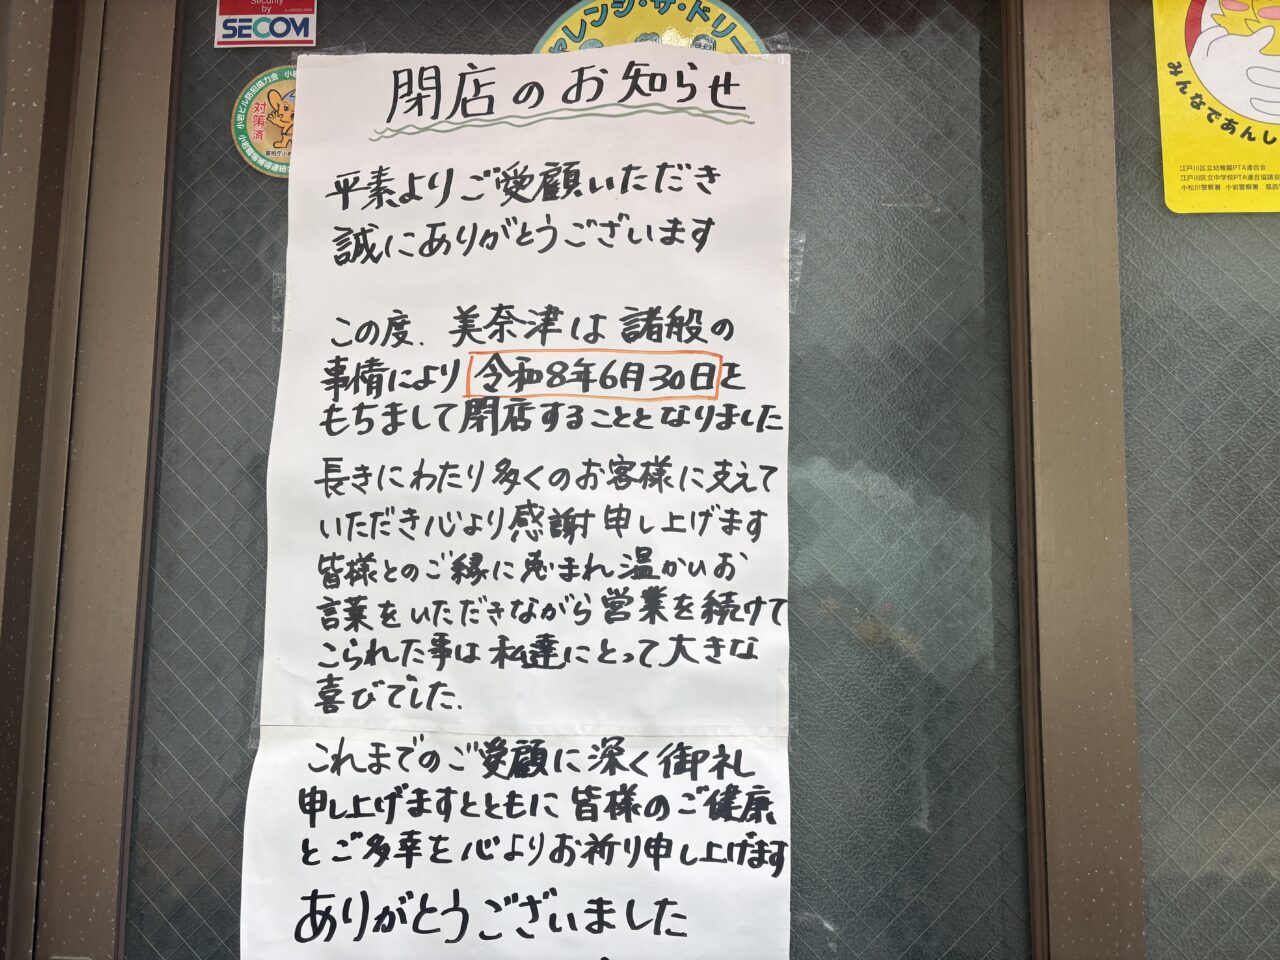 Security
by
SECOM
チャレンジ・ザ・ドリー
小岩ビル防犯協力会
対策済
みんなであんし
江戸川区立幼稚園PTA連合会
江戸川区立中学校PTA連合協議会
小松川警察署 小岩警察署 葛西
閉店のお知らせ
平素よりご愛顧いただき
誠にありがとうございます
この度、美奈津は諸般の
事情により令和8年6月30日を
もちまして閉店することとなりました
長きにわたり多くのお客様に支えて
いただき心より感謝申し上げます
皆様とのご縁に恵まれ温かいお
言葉をいただきながら営業を続けて
こられた事は私達にとって大きな
喜びでした.
これまでのご愛顧に深く御礼
申し上げますとともに皆様のご健康
とご多幸を心よりお祈り申し上げます
ありがとうございました